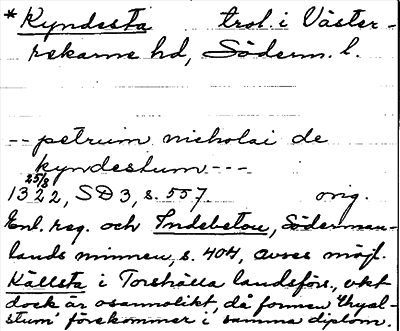 *Kyndesta trol. i Väster-
rekarne hd, Söderm. l.
-- petrum nicholai de
kyndestum ---
25/8
1322, SD 3, s. 557 orig.
Enl. reg. och Indebetou, Söderman-
lands minnen, s. 404, avses möjl.
Källsta i Torshälla landsförs., vket
dock är osannolikt, då formen 'thyæl-
stum' förekommer i samma diplom.